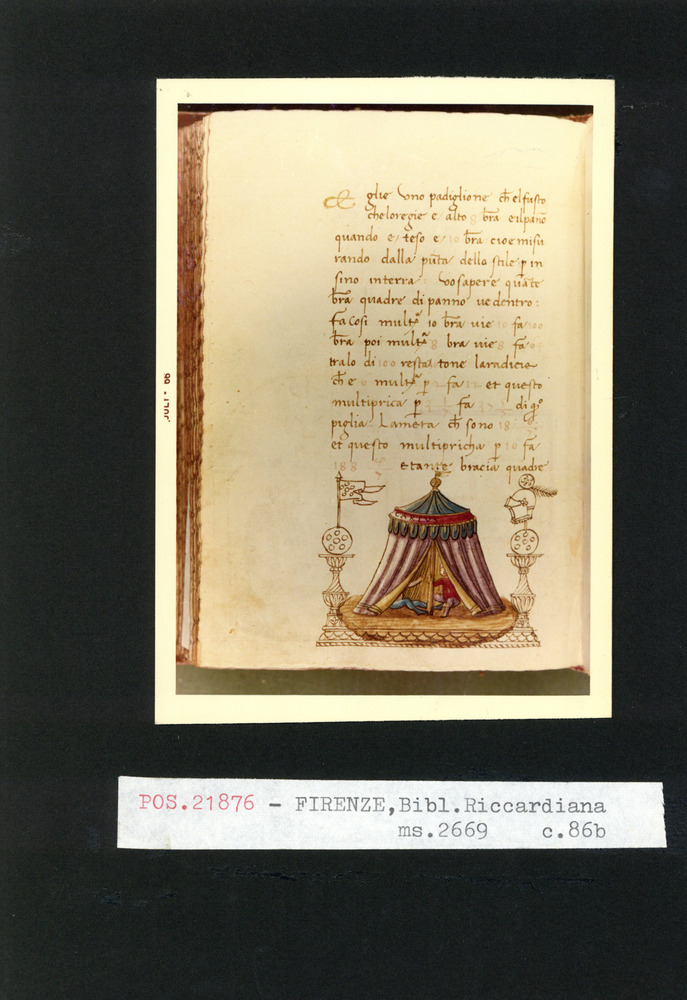 glie uno padiglione ch̄ elfusto
cheloregie e alto 8 bra eilpano
quando e teso e 10 bra cioe misu
rando dalla pūta dello stile p in
sino in terra vosapere quāte
bra quadre di panno ue dentro:
fa cosi 10 bra uie 10 fa 100
bra poi 8 bra uie 8 fa
tralo di 100 resta tone laradicie
ch̄ e 6 p fa 12 et questo
multiprica p fa di
piglia Lameta ch̄ sono 18
et questo multipricha p 10 fa
188 etante bracia quadre
JULY • 66
POS.21876 - FIRENZE,Bibl.Riccardiana
ms.2669 c.86b